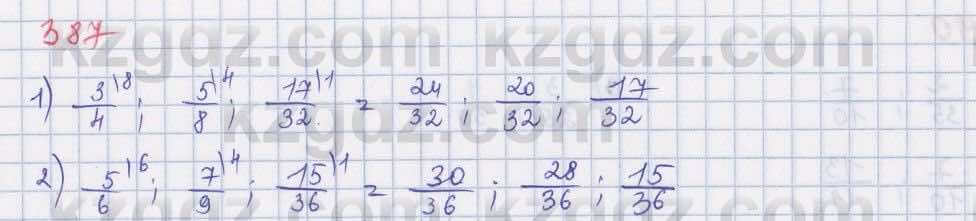 387
kzgdz.com kzgdz.com
1) 3/4 \8 ; 5/8 \4 ; 17/32 \1 = 24/32 ; 20/32 ; 17/32
2) 5/6 \6 ; 7/9 \4 ; 15/36 \1 = 30/36 ; 28/36 ; 15/36